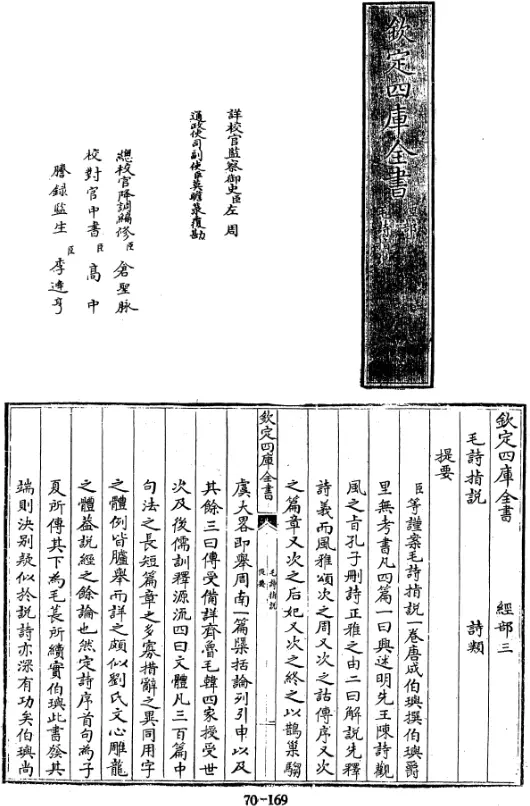 欽定四庫全書
經部
毛詩指說
詳校官監察御史臣左周
通政使司副使臣莫瞻菉覆勘
總校官降調編修臣倉聖脉
校對官中書臣高中
謄錄監生臣李遠亨
欽定四庫全書 經部三
毛詩指說 詩類
提要
臣等謹案毛詩指說一卷唐成伯璵撰伯璵爵
里無考書凡四篇一曰興述明先王陳詩觀
風之旨孔子刪詩正雅之由二曰解說先釋
詩義而風雅頌次之周又次之詁傳序又次
之篇章又次之后妃又次之終之以鵲巢騶
欽定四庫全書
毛詩指說
提要
一
虞大畧即舉周南一篇檃括論列引申以及
其餘三曰傳受備詳齊魯毛韓四家授受世
次及後儒訓釋源流四曰文體凡三百篇中
句法之長短篇章之多寡措辭之異同用字
之體例皆臚舉而詳之頗似劉氏文心雕龍
之體蓋說經之餘論也然定詩序首句為子
夏所傳其下為毛萇所續實伯璵此書發其
端則決別疑似於說詩亦深有功矣伯璵尚
70-169